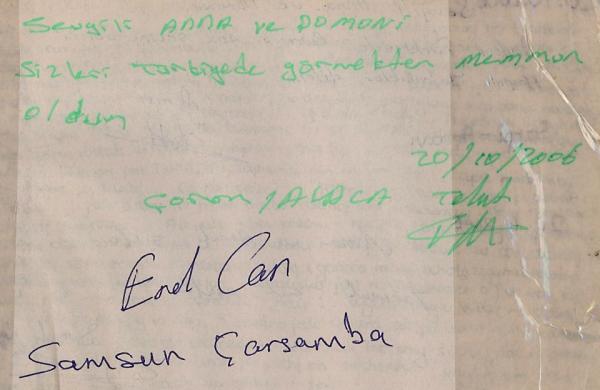 Sevgili ANNA ve DOMONi
Sizleri Torbiyede görmekten memmun
oldum
20/10/2006
Çorom / ALACA Talut
Erol Can
Samsun Çarsamba